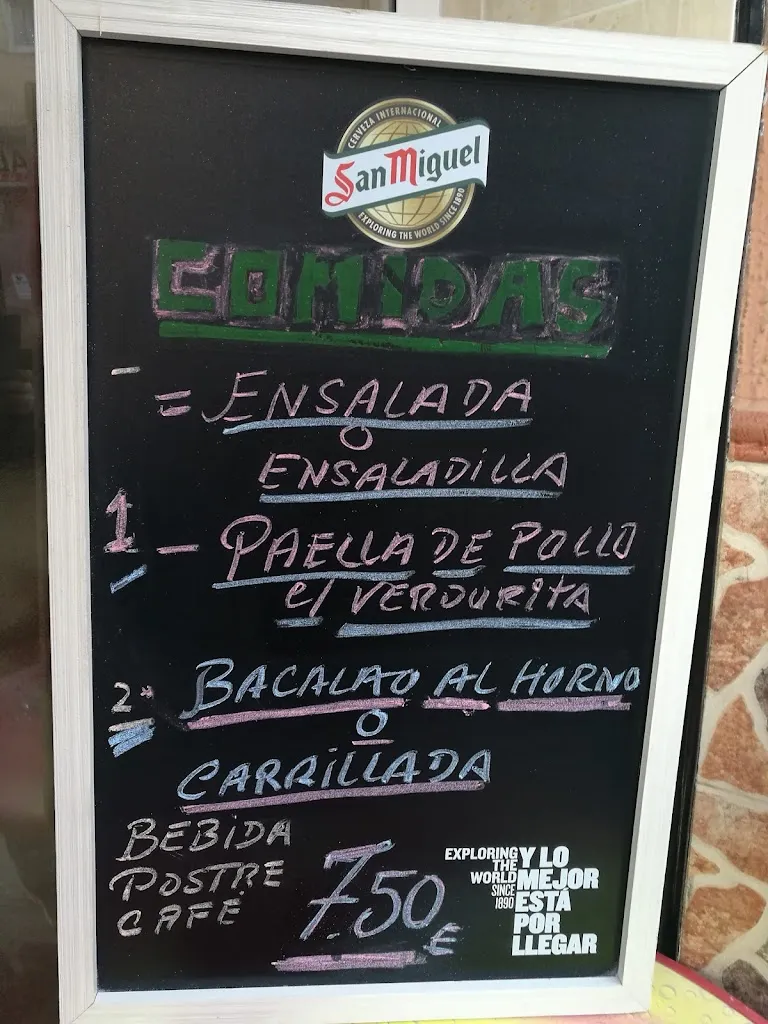 CERVEZA INTERNACIONAL
San Miguel
EXPLORING THE WORLD SINCE 1890
COMIDAS
- = ENSALADA
O
ENSALADILLA
1 - PAELLA DE POLLO
c/ VERDURITA
2· BACALAO AL HORNO
O
CARRILLADA
BEBIDA
POSTRE
CAFÉ
7.50 €
EXPLORING
THE
WORLD
SINCE
1890
Y LO
MEJOR
ESTÁ
POR
LLEGAR